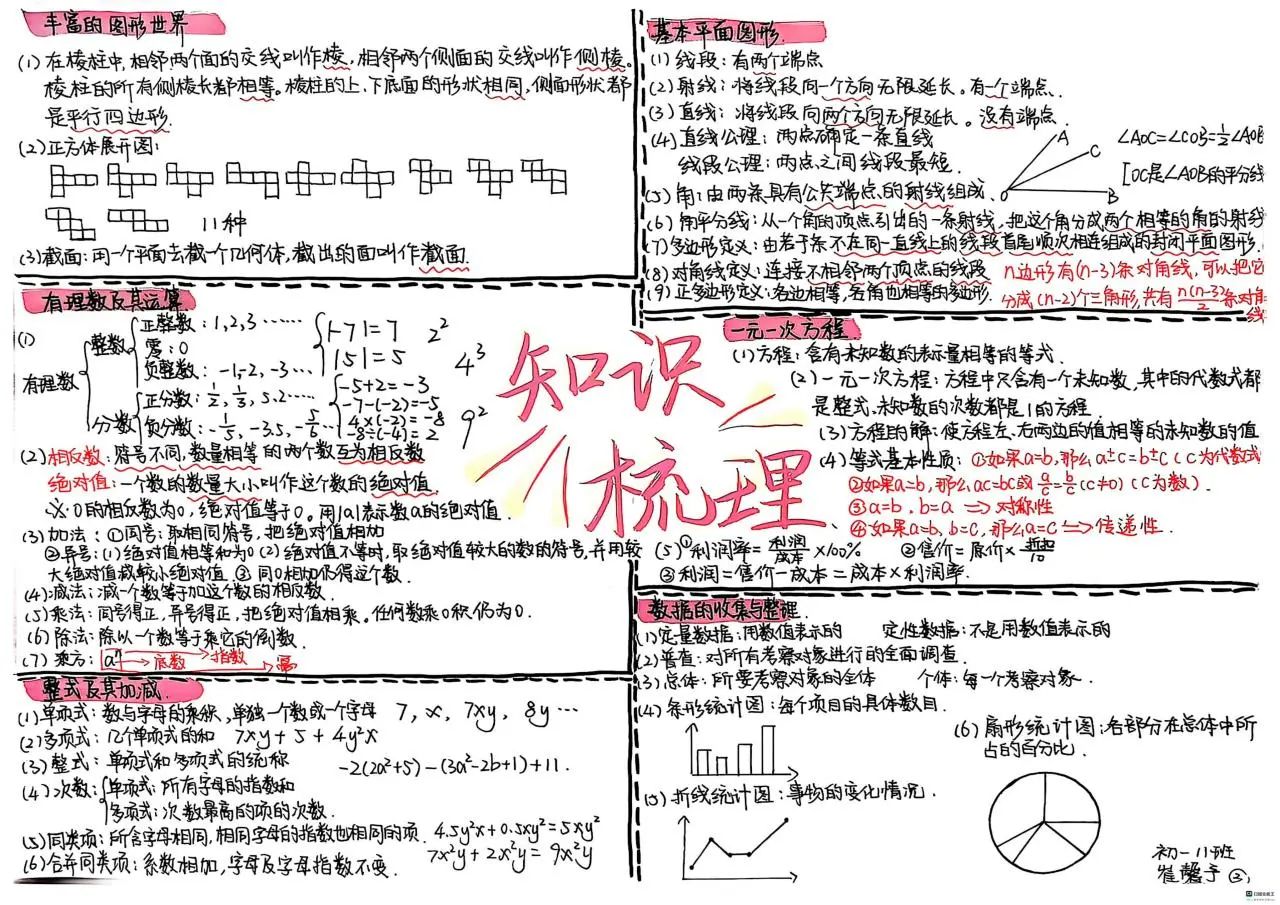 丰富的图形世界
(1)在棱柱中,相邻两个面的交线叫作棱,相邻两个侧面的交线叫作侧棱。
棱柱的所有侧棱长都相等。棱柱的上、下底面的形状相同,侧面形状都
是平行四边形.
(2)正方体展开图:
11种
(3)截面:用一个平面去截一个几何体,截出的面叫作截面.
有理数及其运算.
(1)
有理数
整数
正整数:1,2,3……
零:0
负整数:-1,-2,-3…
分数
正分数:1/2,1/3,5.2…
负分数:-1/5,-3.5,-5/6…
|-7|=7
|5|=5
2²
4³
9²
-5+2=-3
-7-(-2)=-5
4×(-2)=-8
-8÷(-4)=2
(2)相反数:符号不同,数量相等的两个数互为相反数
绝对值:一个数的数量大小叫作这个数的绝对值.
※·0的相反数为0,绝对值等于0。用|a|表示数a的绝对值.
(3)加法:①同号:取相同符号,把绝对值相加
②异号:(1)绝对值相等和为0 (2)绝对值不等时,取绝对值较大的数的符号,并用较
大绝对值减较小绝对值 ③同0相加仍得这个数.
(4)减法:减一个数等于加这个数的相反数.
(5)乘法:同号得正,异号得正,把绝对值相乘。任何数乘0积仍为0.
(6)除法:除以一个数等于乘它的倒数.
(7)乘方:aⁿ →底数 →指数 →幂
整式及其加减.
(1)单项式:数与字母的乘积,单独一个数或一个字母 7,x,7xy,8y…
(2)多项式:几个单项式的和 7xy+5+4y²x
(3)整式:单项式和多项式的统称 -2(2a²+5)-(3a²-2b+1)+11.
(4)次数:单项式:所有字母的指数和
多项式:次数最高的项的次数.
(5)同类项:所含字母相同,相同字母的指数也相同的项. 4.5y²x+0.5xy²=5xy²
(6)合并同类项:系数相加,字母及字母指数不变. 7x²y+2x²y=9x²y
知识
梳理
基本平面图形.
(1)线段:有两个端点
(2)射线:将线段向一个方向无限延长。有一个端点.
(3)直线:将线段向两个方向无限延长。没有端点.
(4)直线公理:两点确定一条直线
线段公理:两点之间线段最短.
(5)角:由两条具有公共端点的射线组成.
A
C
O
B
∠AOC=∠COB=1/2∠AOB
[OC是∠AOB的平分线
(6)角平分线:从一个角的顶点引出的一条射线,把这个角分成两个相等的角的射线
(7)多边形定义:由若干条不在同一直线上的线段首尾顺次相连组成的封闭平面图形.
(8)对角线定义:连接不相邻两个顶点的线段
(9)正多边形定义:各边相等,各角也相等的多边形.
n边形有(n-3)条对角线,可以把它
分成(n-2)个三角形,共有n(n-3)/2条对角
线
一元一次方程
(1)方程:含有未知数的表示量相等的等式.
(2)一元一次方程:方程中只含有一个未知数,其中的代数式都
是整式,未知数的次数都是1的方程.
(3)方程的解:使方程左、右两边的值相等的未知数的值
(4)等式基本性质:①如果a=b,那么a±c=b±c(c为代数式
②如果a=b,那么ac=bc或a/c=b/c(c≠0)(c为数).
③a=b,b=a⇒对称性
④如果a=b,b=c,那么a=c⇒传递性.
(5)①利润率=利润/成本×100% ②售价=原价×折扣/10
③利润=售价-成本=成本×利润率.
数据的收集与整理.
(1)定量数据:用数值表示的 定性数据:不是用数值表示的
(2)普查:对所有考察对象进行的全面调查.
(3)总体:所要考察对象的全体 个体:每一个考察对象.
(4)条形统计图:每个项目的具体数目.
(5)折线统计图:事物的变化情况.
(6)扇形统计图:各部分在总体中所
占的百分比.
初一11班